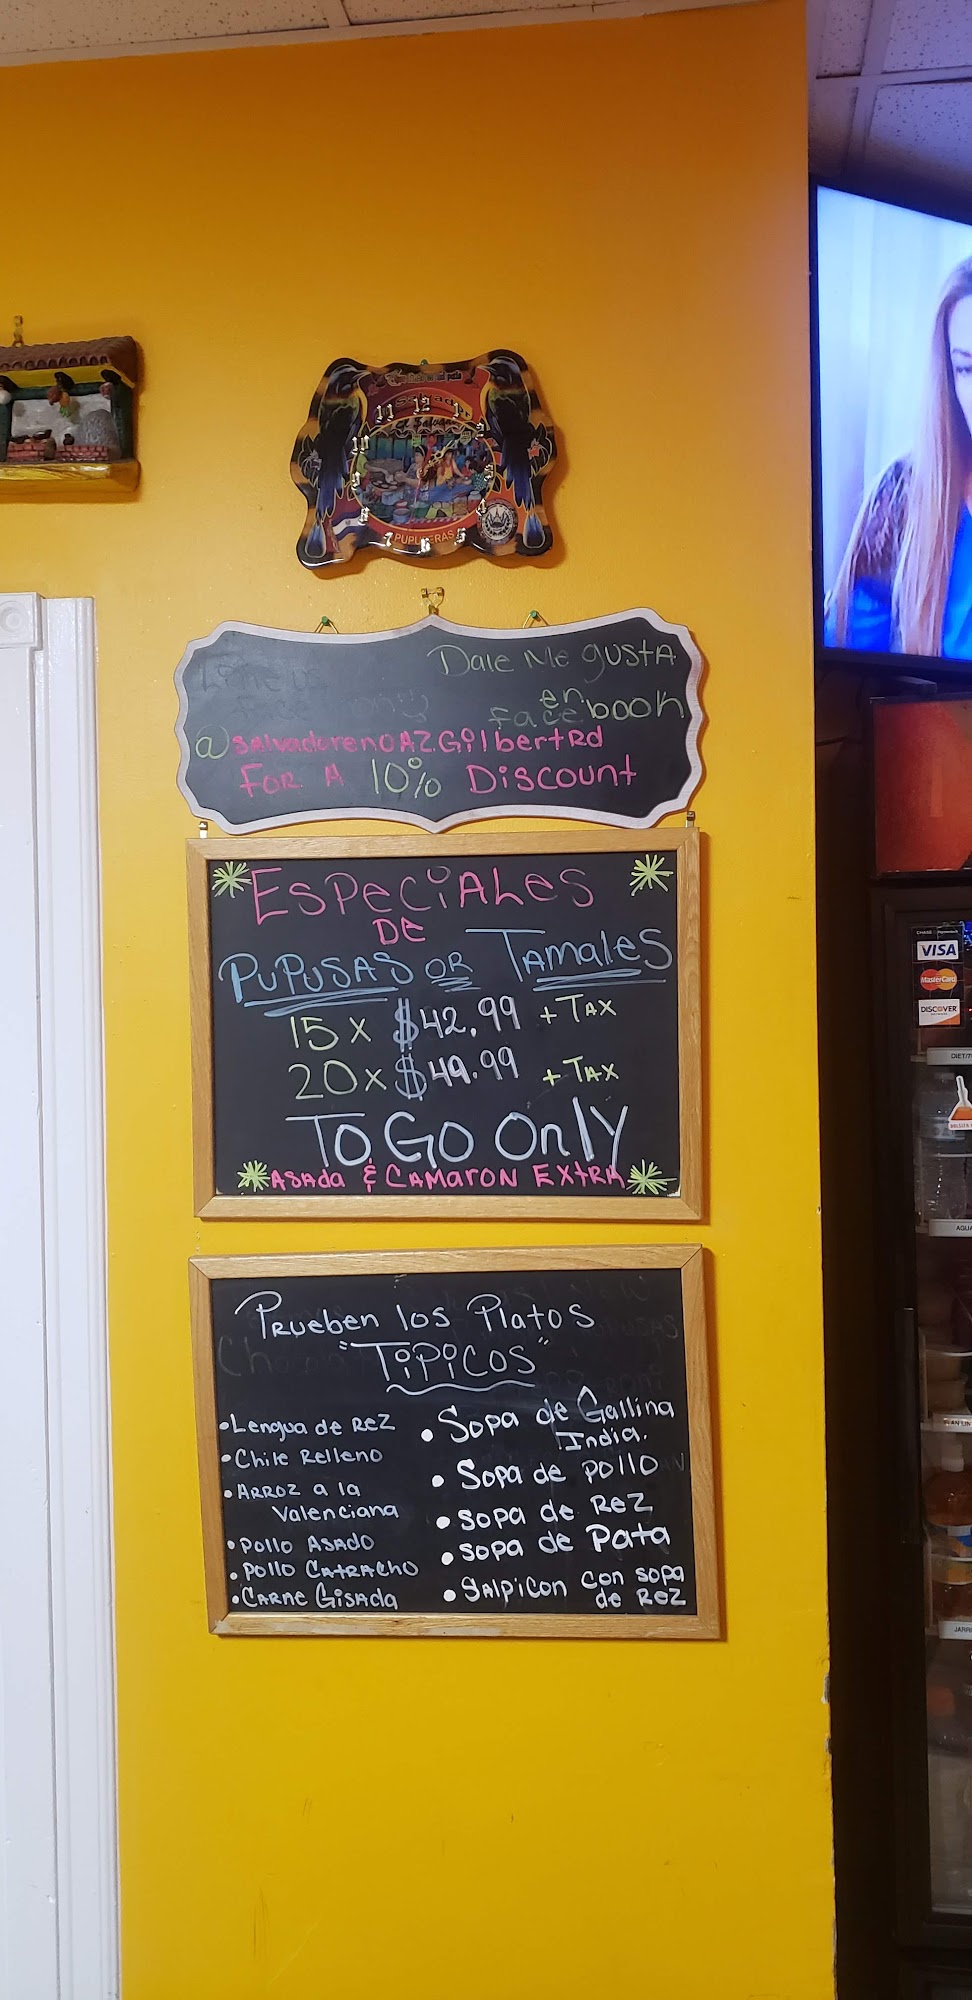 El Salvador
11 12 1
10 2
9 3
8 4
7 6 5
PUPUSERAS
Dale Me gustA
en
facebook
@SalvadorenoAZGilbertRd
FOR A 10% Discount
ESPECiALES
DE
PUPUSAS OR TAMALES
15 x $42.99 + TAX
20 x $49.99 + TAX
TO GO Only
ASAda & CAMARON EXTRA
PRueben los Platos
"TiPiCOS"
•Lengua de Rez
•Chile Relleno
•ARROZ a la
Valenciana
•Pollo ASADO
•Pollo CatRacho
•CARNE Gisada
•Sopa de Gallina
India.
•Sopa de pollo
•sopa de Rez
•sopa de Pata
•SalpiCON con sopa
de Rez
VISA
MasterCard
DISCOVER